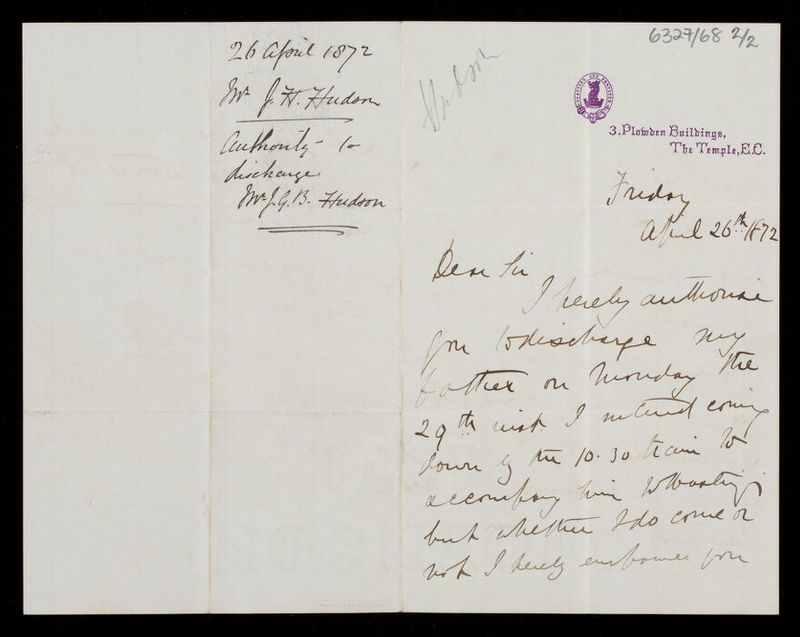 26 April 1872
Mr. J. H. Hudson
Authority to
discharge
Mr. J. G. B. Hudson
Hudson
6327/68 2/2
3, Plowden Buildings,
The Temple, E.C.
Friday
April 26th 1872
Dear Sir
I hereby authorise
you to discharge my
father on Monday the
29th inst. I intend coming
down by the 10.30 train to
accompany him to Hastings
but whether I do come or
not I hereby empower you